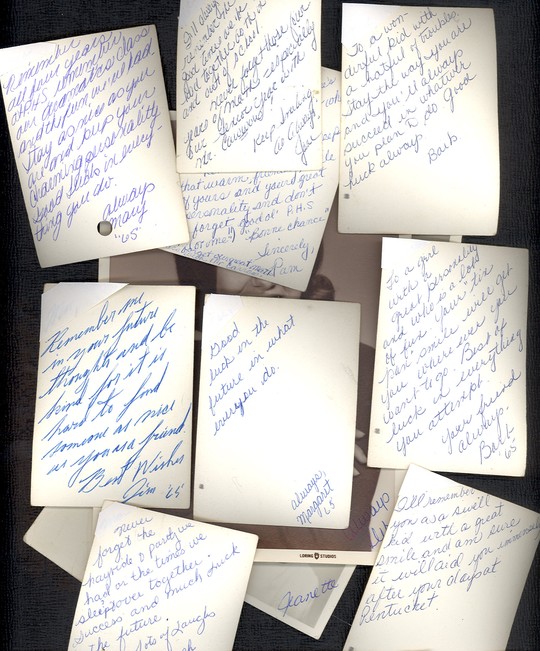 Remember
all four years
at P.H.S. remember
our aromatics class
and the fun we've had
Stay as nice as your
are and keep your
charming personality
Good luck in every-
thing you do.
always
Mary
'65
I'll always
remember
and out of school
Never forget those four
years of math especially
our Junior year with
Mr.
Keep smiling
as always,
To a won-
derful kid with
a hatful of troubles.
Stay the way you are
and you'll always
succeed in whatever
you plan to do. Good
luck always
Barb
that warm, friendly
of yours and your great
personality and don't
forget "good ol' P.H.S
or me!) "Bonne chance"
Sincerely,
Pam
Remember me
in your future
thoughts and be
kind for it is
hard to find
someone as nice
as you as a friend.
Best Wishes
Jim '65
Good
luck in the
future in what
ever you do.
always,
Margaret
'65
To a girl
with a
great personality
and who is a lot
of fun. Your "Tin
par" smile will get
you where ever you
want to go. Best of
luck in everything
you attempt.
Your friend
always,
Barb
'65
Never
forget the
hayride & party we
had or the times we
sleptover together.
Success and much luck
in the future.
Lots of Laughs
LORING STUDIOS
Jeanette
always
I'll remember
you as a swell
kid with a great
smile and am sure
it will aid you immensely
after your days at
Pentucket.